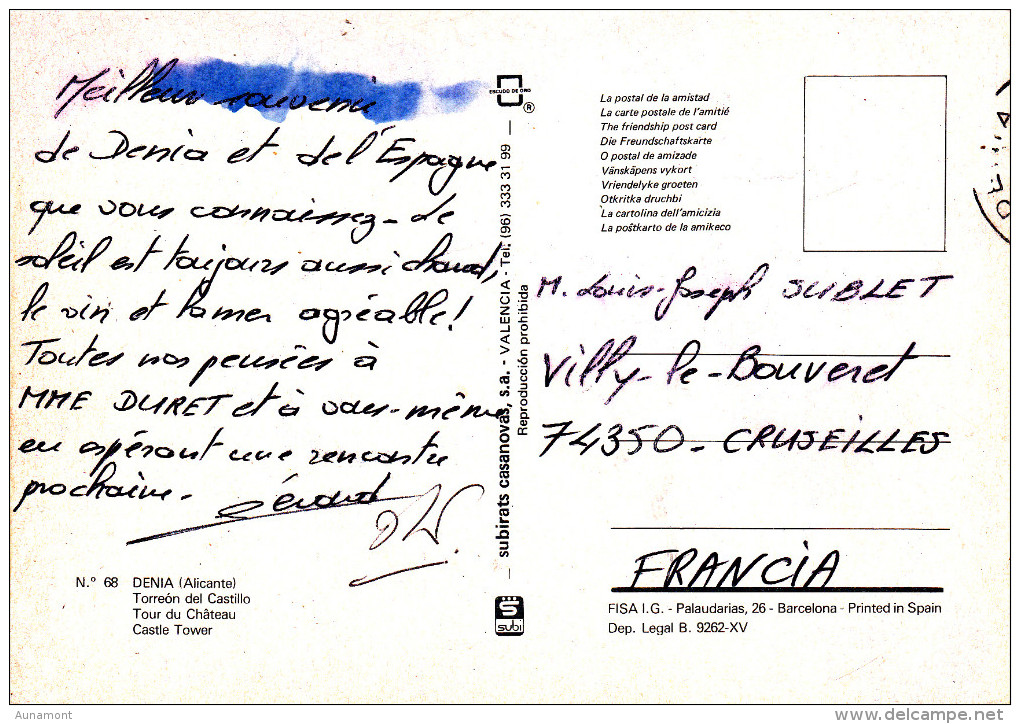 Meilleur souvenir
de Denia et de l'Espagne
que vous connaissez - Le
soleil est toujours aussi chaud,
le vin et la mer agréable!
Toutes nos pensées à
MME DURET et à vous-même
en espérant une rencontre
prochaine. Gérard
N.º 68 DENIA (Alicante)
Torreón del Castillo
Tour du Château
Castle Tower
ESCUDO DE ORO
®
subirats casanovas, s.a. - VALENCIA - Tel: (96) 333 31 99 —
Reproducción prohibida
subi
La postal de la amistad
La carte postale de l'amitié
The friendship post card
Die Freundschaftskarte
O postal de amizade
Vänskäpens vykort
Vriendelyke groeten
Otkritka druchbi
La cartolina dell'amicizia
La poŝtkarto de la amikeco
M. Louis-Joseph SUBLET
Villy-le-Bouveret
74350 - CRUSEILLES
FRANCIA
FISA I.G. - Palaudarias, 26 - Barcelona - Printed in Spain
Dep. Legal B. 9262-XV
Aunamont
delcampe.net